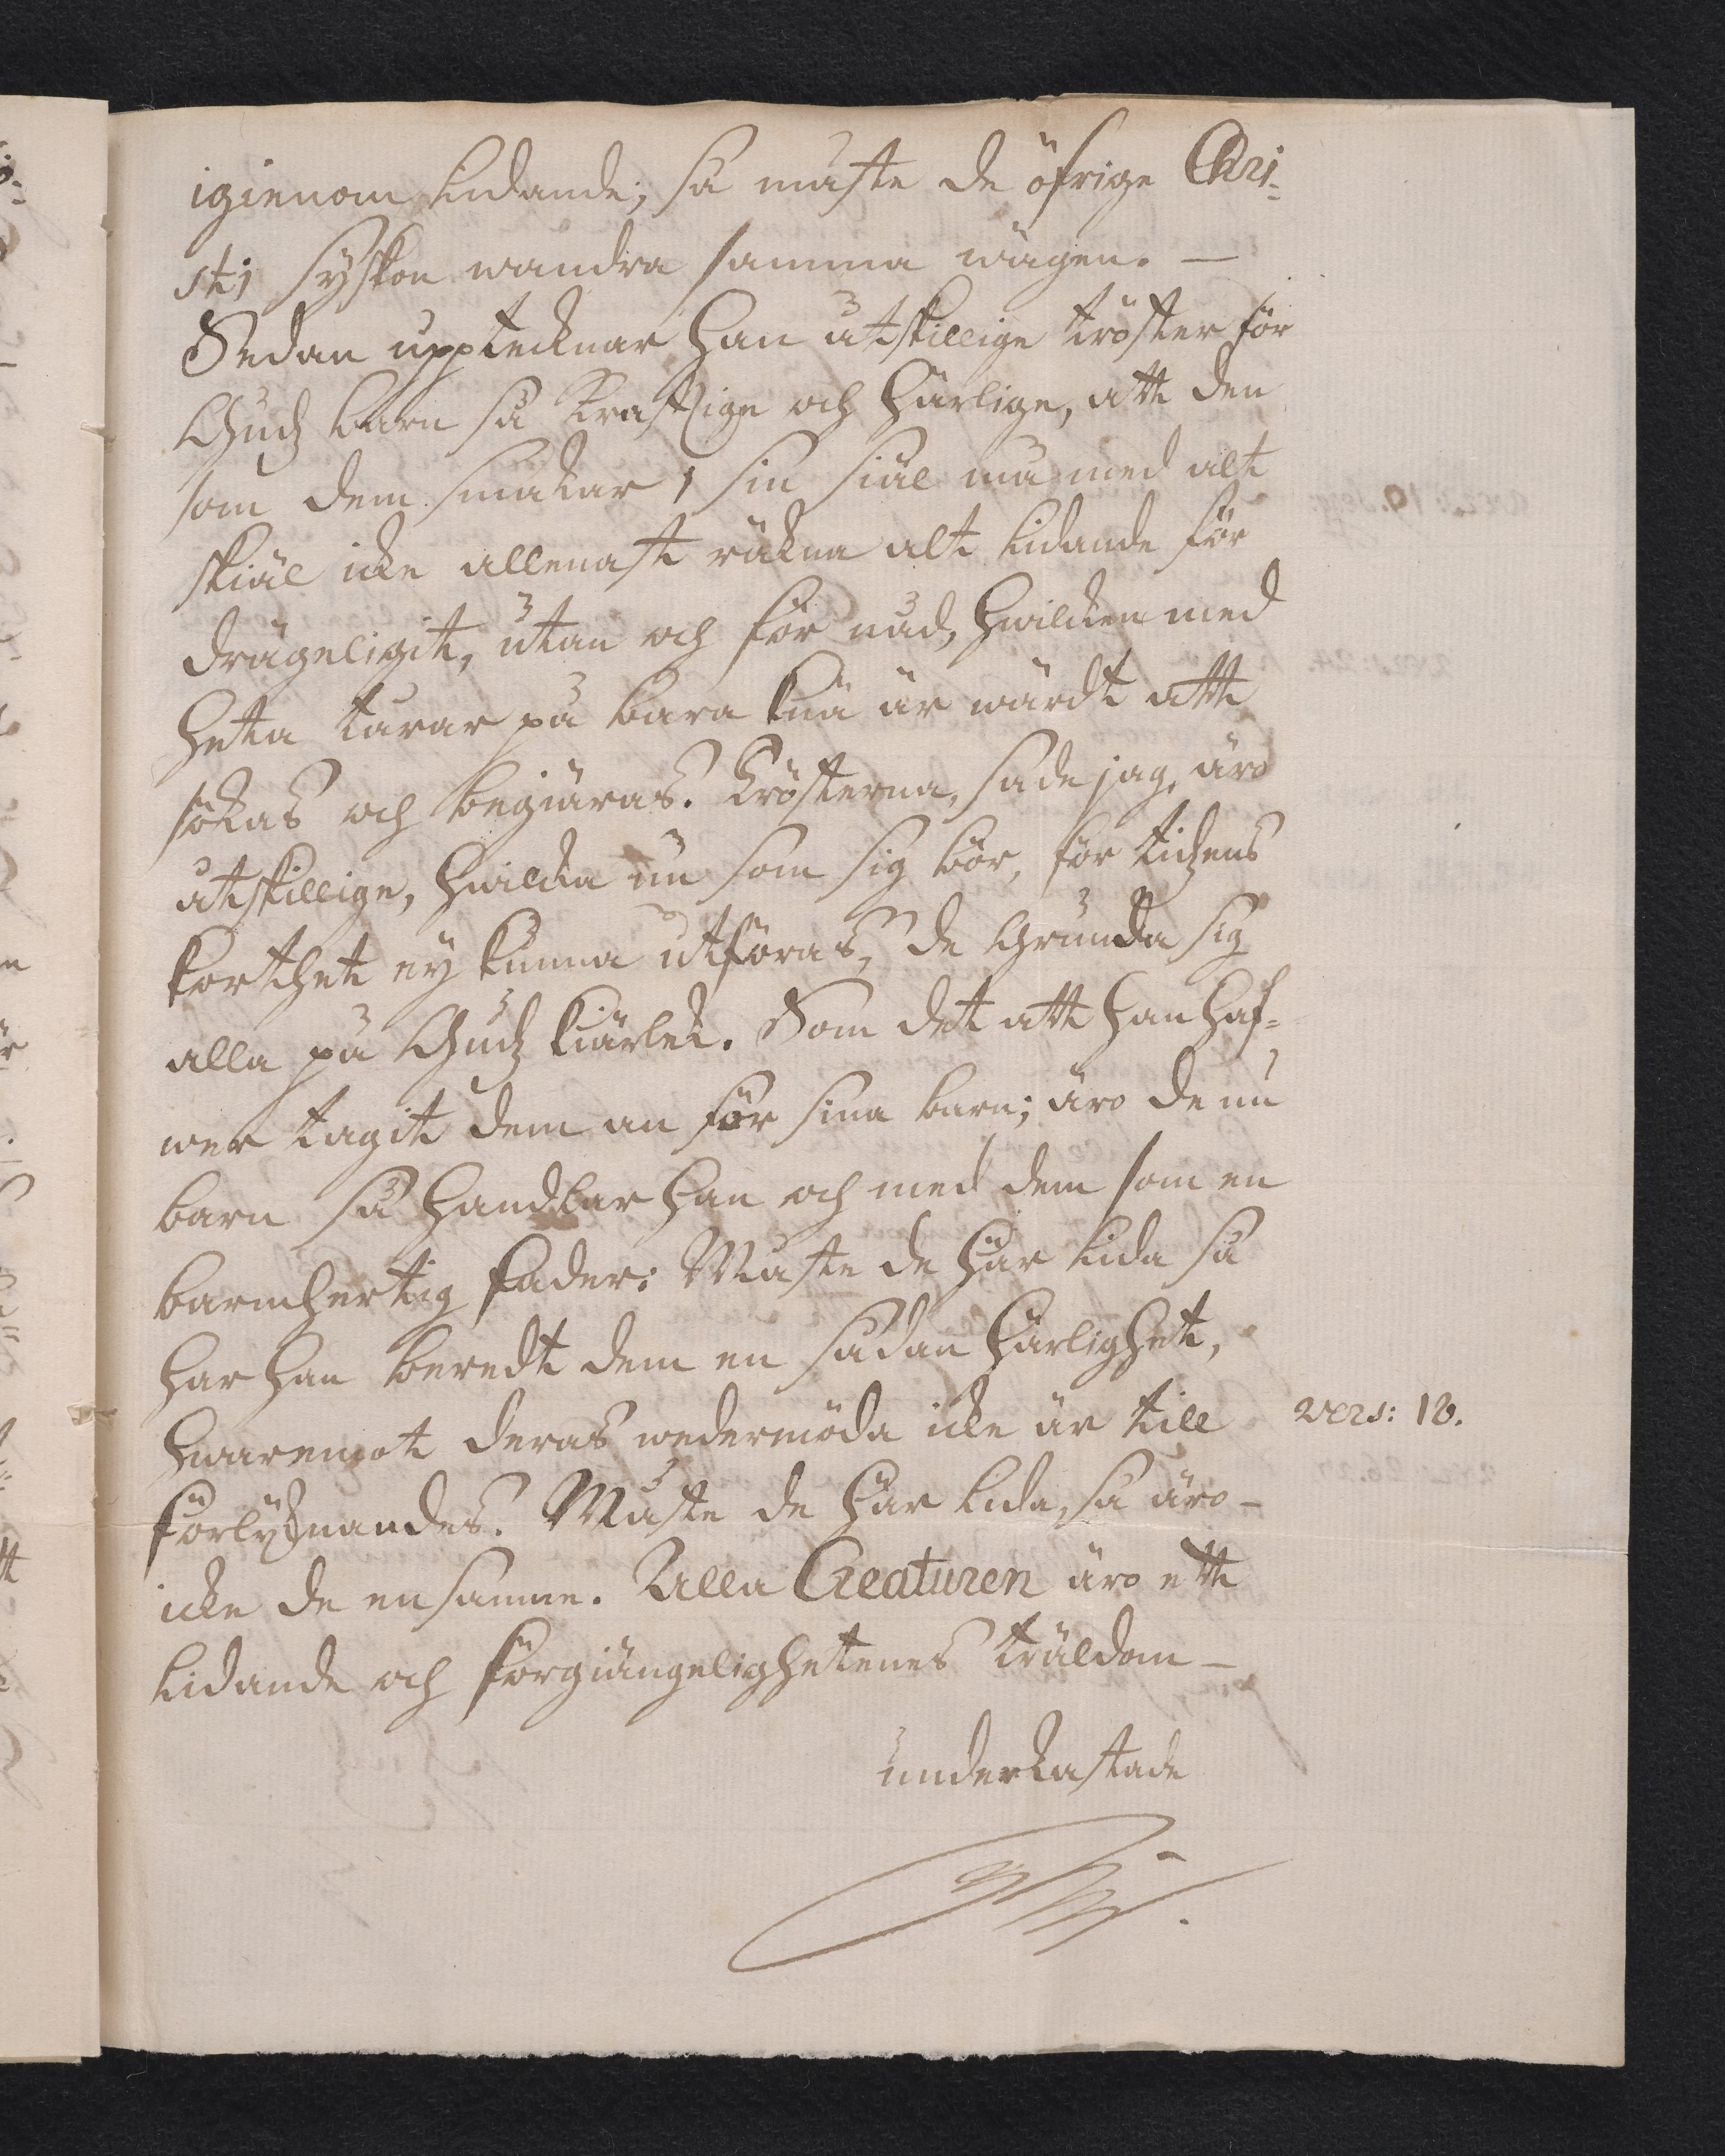 igienom lidande; så måste de öfrige Chri-
sti syskon wandra samma wägen. —
Sedan upptecknar han åtskillige tröster för
Gudz barn så kraftige och härlige, att den
som dem smakar i sin siäl må med alt
skiäl icke allenast räkna alt lidande för
drägeligit, utan och för nåd, hwilken med
heta tårar på bara knä är wärdt att
sökas och begiäras. Trösterna, sade jag, äro
åtskillige, hwilka nu som sig bör, för tidzens
korthet ey kunna utföras, de grunda sig
alla på Gudz kiärlek. Som det att han haf-
wer tagit dem an för sina barn; äro de nu
barn så handlar han och med dem som en
barmhertig fader: Måste de här lida så
har han beredt dem en sådan härlighet,
hwaremot deras wedermöda icke är till
vers: 18.
förlyknandes. Måste de här lida, så äro —
icke de ensamme. Alla Creaturen äro ett
lidande och förgiängelighetenes träldom —
underkastade